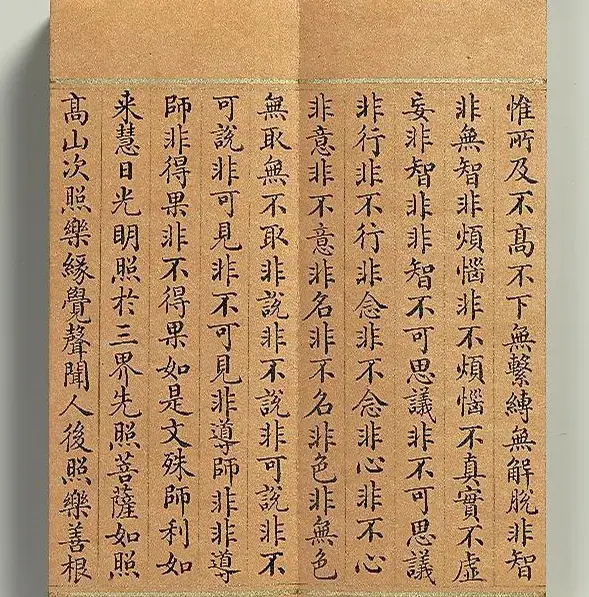 惟所及不髙不下無繫縛無解脫非智
非無智非煩惱非不煩惱不真實不虛
妄非智非非智不可思議非不可思議
非行非不行非念非不念非心非不心
非意非不意非名非不名非色非無色
無取無不取非說非不說非可說非不
可說非可見非不可見非導師非非導
師非得果非不得果如是文殊師利如
来慧日光明照於三界先照菩薩如照
髙山次照樂緣覺聲聞人後照樂善根